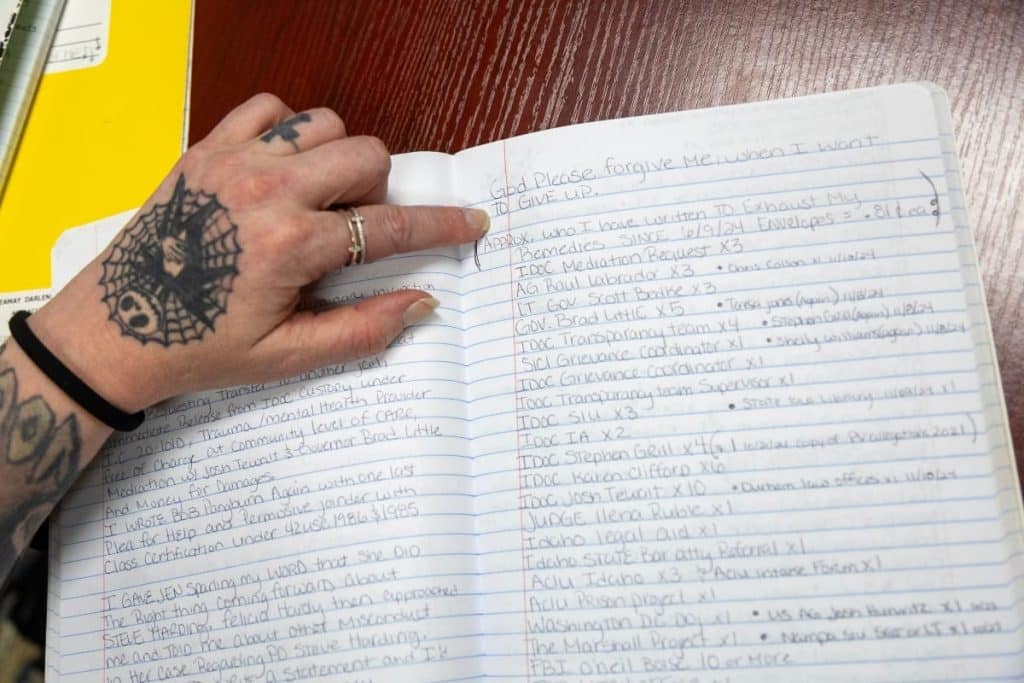 EAMAY DARLEN
Requesting Transfer to another Jail
Immediate Release from IDOC custody under
I.C 20-101D, Trauma/mental Health Provider
free of charge, at community level of CARE,
Mediation w/ Josh Tewalt & Governor Brad Little
And Money for Damages
I WROTE Bob Pangburn Again with one last
Plea for Help and Permissive Joinder with
Class Certification under 42 USC 1986 & 1985
I GAVE JEN Sparling my WORD that She DID
The Right thing coming forward about
STEVE HARDING, felicia Hardy then approached
me and TOLD me about other Misconduct
in Her Case Regarding PO Steve Harding,
a Statement and I'd
God Please forgive Me, when I want
TO GIVE UP.
(Approx. who I have written TO Exhaust My
Remedies SINCE 6/9/24 Envelopes = .81¢ ea.)
IDOC Mediation Request x3
AG Raul Labrador x3 • Chris
LT Gov. Scott Bedke x3
Gov. Brad Little x5 • Teresa Jones (again)
IDOC Transparancy team x4 • Stephen (again) 11/8/24
SICI Grievance Coordinator x1 • Shelly Williams (again) 11/8/24
IDOC Grievance Coordinator x1
IDOC Transparancy team Supervisor x1
IDOC SIU x3 • State law Library x1
IDOC IA x2
IDOC Stephen Grill x4 ( copy of 2021)
IDOC Karen Clifford x6
IDOC Josh Tewalt x10 • Durham law offices x1
JUDGE Ilena Ruble x1
Idaho legal aid x1
Idaho State Bar atty Referral x1
Aclu Idaho x3 Aclu intake form x1
Aclu Prison project x1
Washington DC x1 • US AG Josh Hurwitz x1
The Marshall Project x1 • Nampa x1
FBI O'neil Base 10 or More